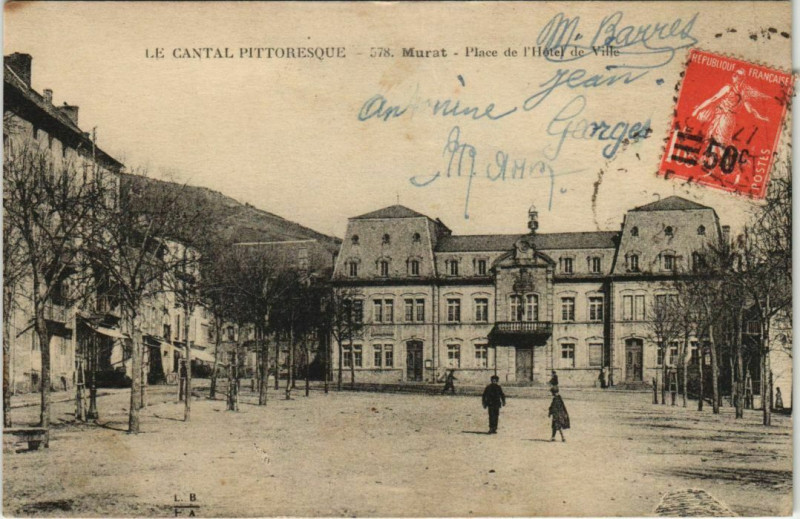 LE CANTAL PITTORESQUE - 578. Murat - Place de l'Hôtel de Ville
M. Barres
Jean.
Antonine
Georges
M.
RÉPUBLIQUE FRANÇAISE
50c
POSTES
L. B.
A